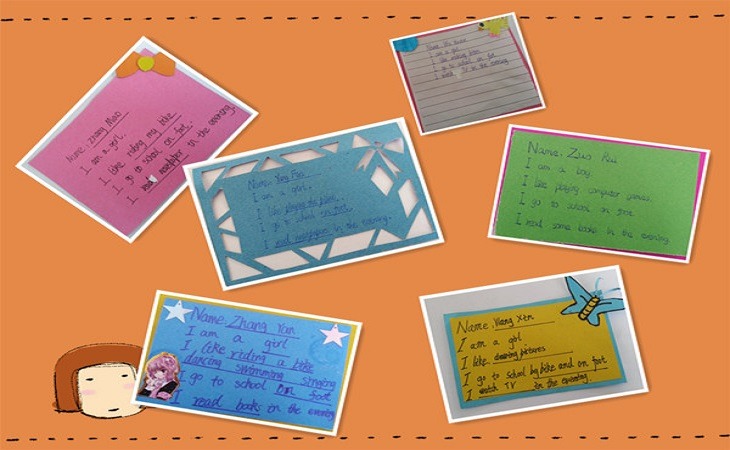 Name: Zhang Miao
I am a girl.
I like riding my bike
I go to school on foot.
I read newspaper in the evening.
I am a girl
I go to school on foot
TV in the evening
Name: Ying Fan
I am a girl.
I like playing the piano.
I go to school on foot.
I read newspapers in the evening.
Name: Zuo Rui
I am a boy.
I like playing computer games.
I go to school on foot
I read some books in the evening.
Name: Zhang Yan
I am a girl
I like riding a bike
dancing swimming singing
I go to school on foot
I read books in the evening
Name: Wang Xin
I am a girl
I like drawing pictures
I go to school by bike and on foot
I watch TV in the evening.